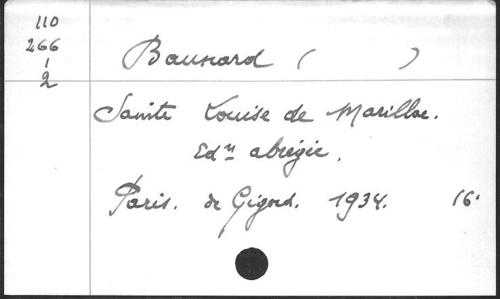 110
266
1
2
Baunard ( )
Sainte Louise de Marillac.
Edn abrégée.
Paris. de Gigord. 1934. 16°